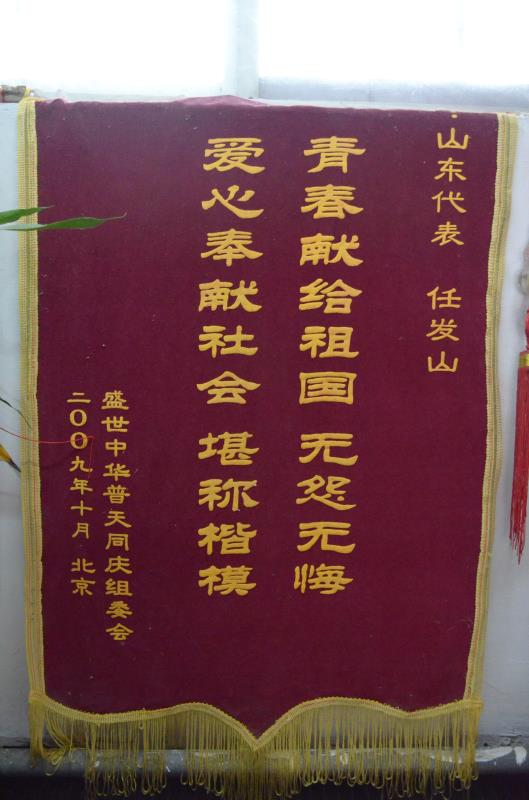 山东代表 任发山
青春献给祖国 无怨无悔
爱心奉献社会 堪称楷模
盛世中华普天同庆组委会
二00九年十月 北京